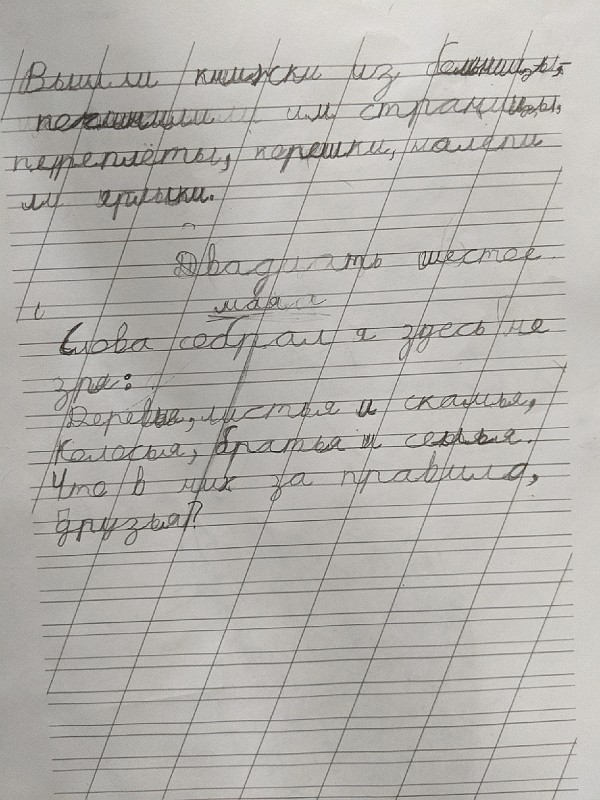 Вышли книжки из больницы,
починили им страницы,
переплёты, корешки, налепи
ли ярлыки.
Двадцать шестое
марта
Слова собрал я здесь не
зря:
Деревья, листья и скамья,
Колосья, братья и семья.
Что в них за правило,
друзья?